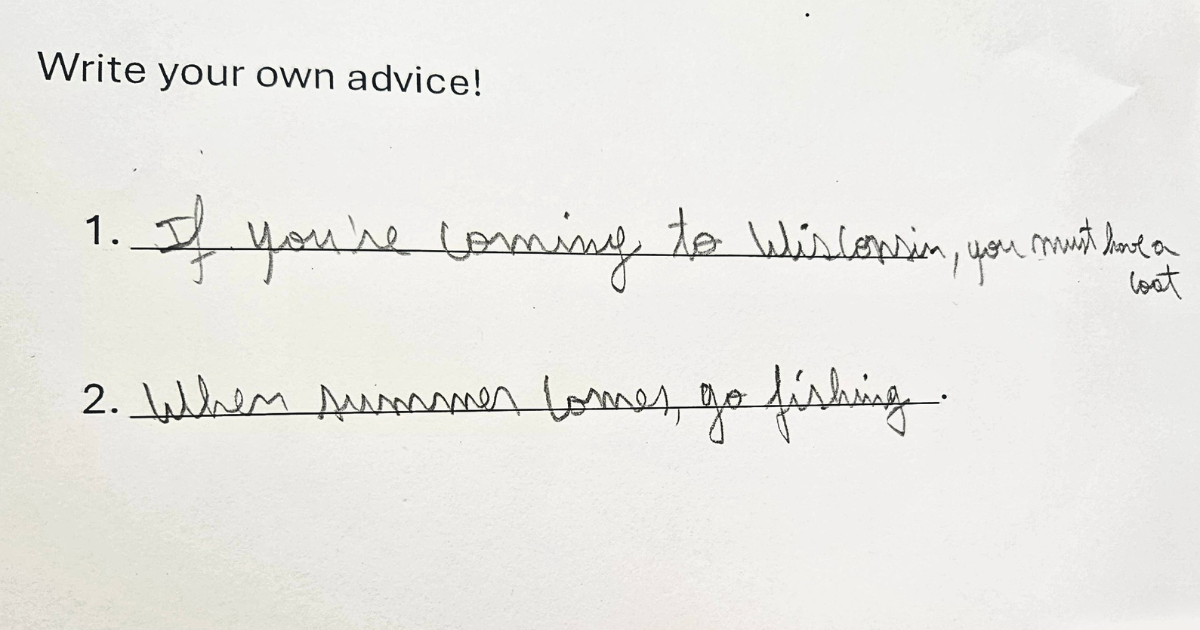 Write your own advice!
1. If you're coming to Wisconsin, you must have a
coat
2. When summer comes, go fishing.